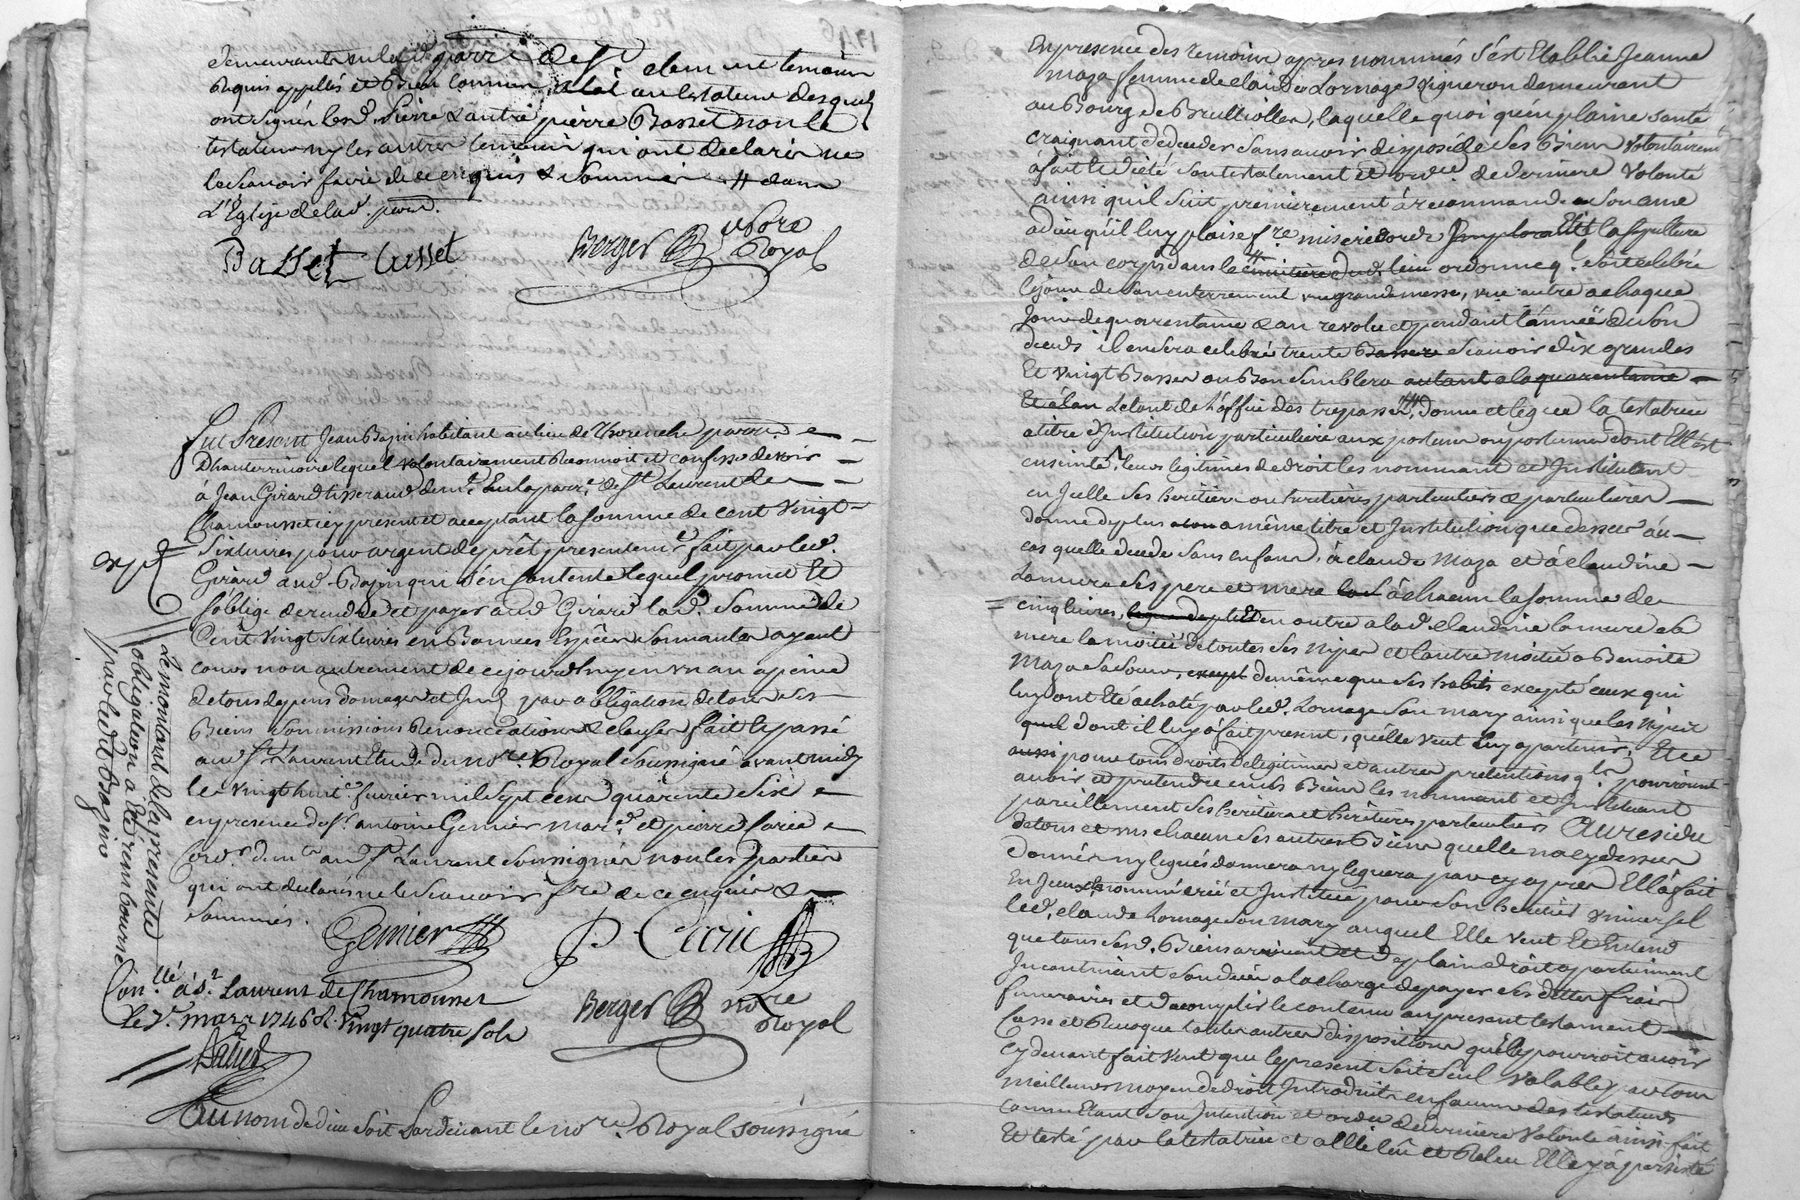 1746
demeurants en lad. parr. de St clement temoins
requis appellés et bien connus dud. testateur desquels
ont signés lesd. Pierre & autre pierre Basset non le
testateur ny les autres temoins qui ont declarés ne
le sçavoir faire de ce enquis & sommés // dans
L'Eglise de lad. parr.
Basset Cusset
Berger R nore Royal
fut Present Jean Bajin habitant au lieu de Thorenche parr. de
D'hauterrivoire lequel volontairement Reconnoit et confesse devoir
à Jean Girard tisserand demt. en la parr. de St Laurent de
Chamousset icy present et acceptant la somme de cent vingt
six livres pour argent de prêt presentemt. fait par led.
Girard aud. Bajin qui s'en contente lequel promet Et
s'oblige de rendre et payer aud. Girard lad. somme de
Cent vingt six livres en Bonnes Espêces sonnantes ayant
cours non autrement de ce jourd'huy en un an a peine
de tous depens domages et Int. par obligation de tous ses
Biens soumissions Renonciations & clauses fait et passé
aud. St Laurent Etude du nore. Royal soussigné avant midy
le vingt huit fevrier mil sept cens quarente six
en presence de sr. antoine Gemier mard. et pierre
demt. aud. St Laurent soussignés non les parties
qui ont declarés ne le scavoir fre de ce enquis &
sommés.
Gemier
Berger R nore Royal
Con.llé à St. Laurent de Chamousset
le 7e mars 1746 R. Vingt quatre sols
expé
Le montant de la presente
obligation a Eté rembourse
par led. Bajin
Au nom de dieu soit Pardevant le nore. Royal soussigné
En presence des temoins apres nommés s'est Etablie Jeanne
Maza femme de claude Lornage vigneron demeurant
au Bourg de Brulliolles, laquelle quoi qu'en plaine santé
craignant de deceder sans avoir disposé de ses Biens volontairemt
à fait et dicté son testalement et ordre. de derniere volonté
ainsi quil suit premierement à recommandé son ame
a dieu qu'il luy plaise fre misericorde Implorant Elit la sepulture
de son corps dans le cimitière dud. lieu ordonne q. soit celebré
le jour de son enterrement une grande messe, une autre a chaque
jour de quarentaine & an revolu et pendant l'année de son
deceds il en sera celebré trente Basses scavoir dix grandes
Et vingt Basses ou Bon semblera autant a la quarentaine
Et à l'an Le tout de l'office des trepassés, donne et legue la testatrice
a titre d'Institution particuliere aux postume ou postumes dont Elle est
enceinte leurs legitimes de droit les nommant et Instituant
en Icelle ses heritiers ou heritières particuliers & particulieres
donne de plus a même titre et Institution que dessus au
cas quelle decede sans enfans, à claude Maza et à claudine
Lamure ses pere et mere à chacun la somme de
cinq livres, en outre a lad. claudine lamure sa
mere la moitié de toutes ses nipes et l'autre moitié a Benoite
Maza sa sœur, except de même que ses habits excepté ceux qui
luy ont Eté achetés par led. Lornage son mary ainsi que les nipes
quil dont il luy à fait present, qu'elle veut luy apartenir, Et ce
aussi pour tous droits de legitimes et autres pretentions ql. pourroient
avoir et pretendre en ses Biens les nommant et Instituant
pareillement ses heritiers et heritieres particuliers Au residu
de tous et uns chacuns ses autres Biens quelle na cy dessus
donnés ny legués donnera ny leguera par cy apres Elle à fait
En Iceux nommé créé et Institué pour son heritier universel
led. claude Lornage son mary auquel Elle veut Et Entend
que tous sesd. Biens arrivent et de plain droit apartiennent
Incontinant son deceds a la charge de payer ses dettes frais
funeraires et d'acomplir le contenu au present testament
Casse et Revoque toutes autres dispositions qu'elle pourroit avoir
cy devant fait veut que le present soit seul valable par tous
meilleurs moyens de droit Introduits en faveur des testateurs
comme Etant son Intention et ordre. derniere volonté ainsi fait
Et testé par la testatrice et a Elle leu et Releu Elle y à persisté